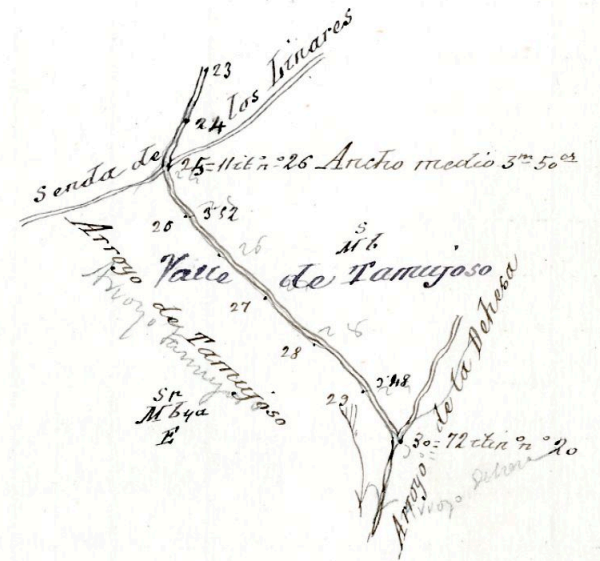 23
24
Senda de los Linares
25=11 itº nº 26 Ancho medio 3m 50cs
26
352
26
S
Mb
Valle de Tamujoso
Arroyo de Tamujoso
Arroyo Tamujoso
27
28
29
248
Sr
Mbya
E
30=72 itinº nº 20
Arroyo de la Dehesa
Arroyo Dehesa